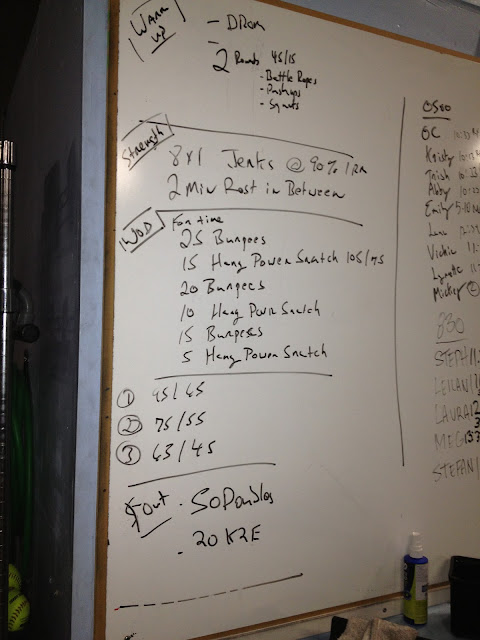 WARM UP
- DROM
-
2 Rounds 45/15
- Battle Ropes
- Pushups
- Squats
Strength
8x1 Jerks @ 90% 1RM
2 Min Rest in Between
WOD
For time
25 Burpees
15 Hang Power Snatch 105/75
20 Burpees
10 Hang Pwr Snatch
15 Burpees
5 Hang Power Snatch
① 95/65
② 75/55
③ 63/45
Out - 50 Doubles
- 20 K2E
0500
OC
Kristy
Trish
Abby
Emily
Lynette
Mickey
830
STEPH
LEILANI
LAURA
MEG
STEFANI